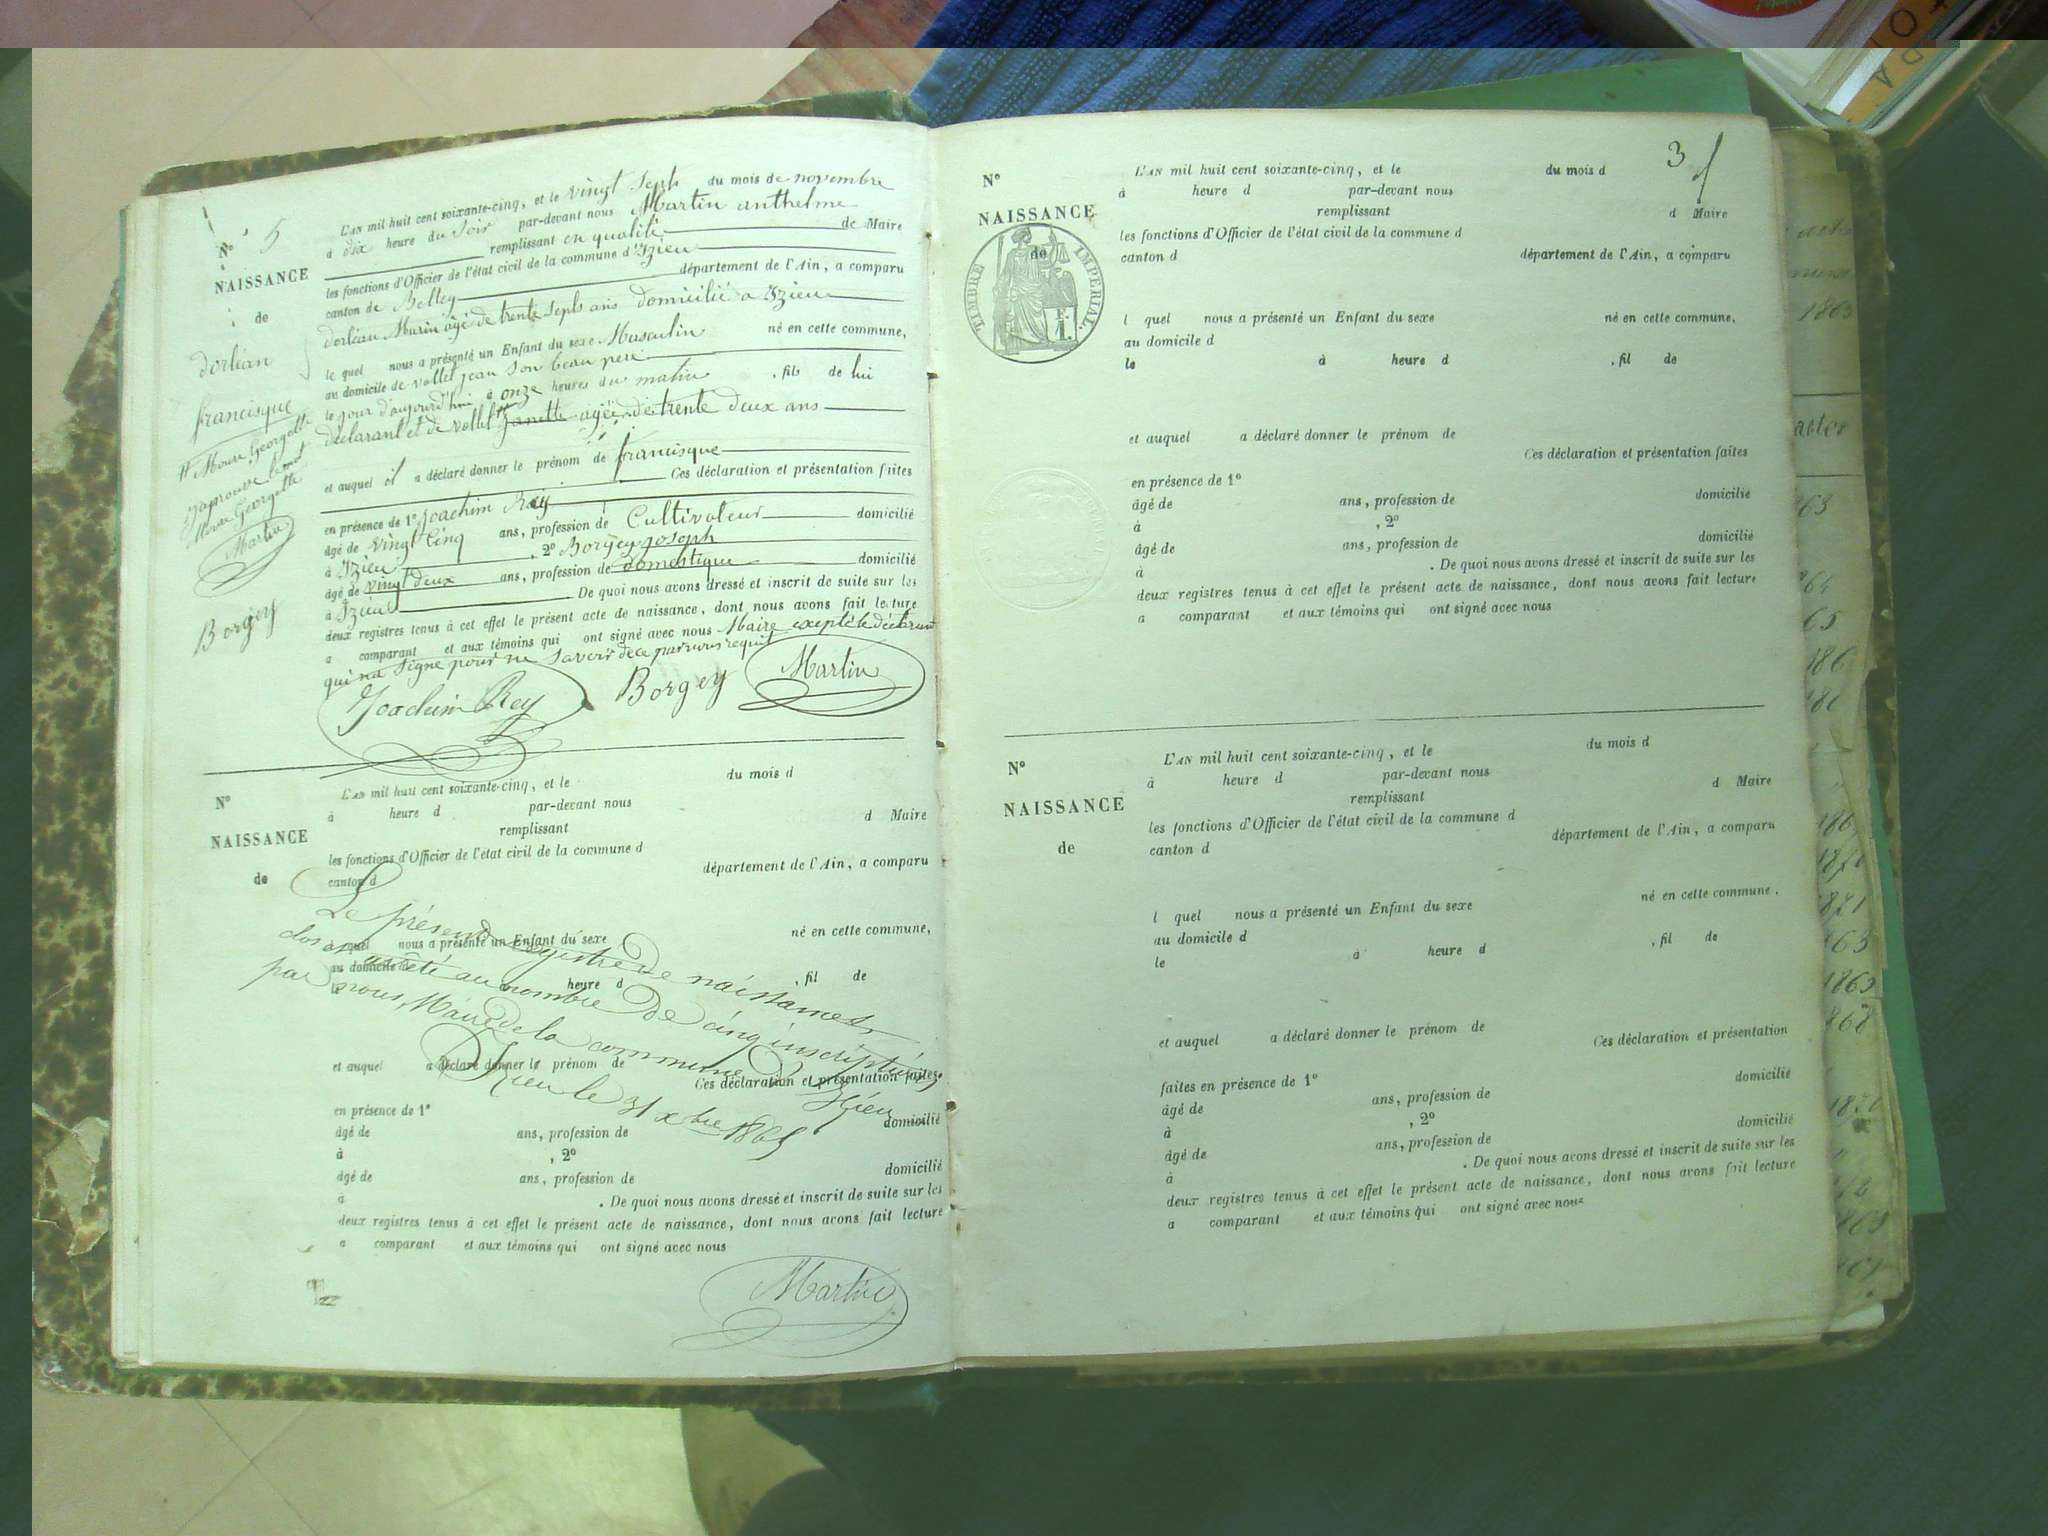 N° 5
NAISSANCE
de
dorléan
francisque
# Moure Georgette
japrouve le mot
Moure Georgette
Martin
Borgey
L'AN mil huit cent soixante-cinq, et le vingt Sept du mois de novembre
à dix heure du Soir par-devant nous Martin anthelme
remplissant en qualité de Maire
les fonctions d'Officier de l'état civil de la commune d'Izieu
canton de Belley département de l'Ain, a comparu
dorléan Marin âgé de trente Septs ans domicilié a Izieu
le quel nous a présenté un Enfant du sexe Masculin né en cette commune,
au domicile de vollet jean Son beau pere
le jour d'aujourd'hui à onze heures du matin , fils de lui
déclarant et de vollet # agée de trente deux ans
et auquel il a déclaré donner le prénom de francisque
Ces déclaration et présentation faites
en présence de 1° Joachim Rey
âgé de vingt Cinq ans, profession de Cultivateur domicilié
à Izieu , 2° Borgey joseph
âgé de vingt deux ans, profession de domestique domicilié
à Izieu De quoi nous avons dressé et inscrit de suite sur les
deux registres tenus à cet effet le présent acte de naissance, dont nous avons fait lecture
a comparant et aux témoins qui ont signé avec nous Maire excepté le déclarant
qui na Signe pour ne Savoir de ce par nous requit
Joachim Rey Borgey Martin
N°
NAISSANCE
de
L'AN mil huit cent soixante-cinq, et le du mois d
à heure d par-devant nous
remplissant d Maire
les fonctions d'Officier de l'état civil de la commune d
canton d département de l'Ain, a comparu
l quel nous a présenté un Enfant du sexe né en cette commune,
au domicile d
le à heure d , fil de
et auquel a déclaré donner le prénom de
Ces déclaration et présentation faites
en présence de 1°
âgé de ans, profession de domicilié
à , 2°
âgé de ans, profession de domicilié
à . De quoi nous avons dressé et inscrit de suite sur les
deux registres tenus à cet effet le présent acte de naissance, dont nous avons fait lecture
a comparant et aux témoins qui ont signé avec nous
Le présent registre de naissances
clos et arrêté au nombre de cinq inscriptions
par nous, Maire de la commune d'Izieu
Izieu le 31 xbre 1865
Martin
3
N°
NAISSANCE
de
TIMBRE IMPÉRIAL
F.
1.
L'AN mil huit cent soixante-cinq, et le du mois d
à heure d par-devant nous
remplissant d Maire
les fonctions d'Officier de l'état civil de la commune d
canton d département de l'Ain, a comparu
l quel nous a présenté un Enfant du sexe né en cette commune,
au domicile d
le à heure d , fil de
et auquel a déclaré donner le prénom de
Ces déclaration et présentation faites
en présence de 1°
âgé de ans, profession de domicilié
à , 2°
âgé de ans, profession de domicilié
à . De quoi nous avons dressé et inscrit de suite sur les
deux registres tenus à cet effet le présent acte de naissance, dont nous avons fait lecture
a comparant et aux témoins qui ont signé avec nous
N°
NAISSANCE
de
L'AN mil huit cent soixante-cinq, et le du mois d
à heure d par-devant nous
remplissant d Maire
les fonctions d'Officier de l'état civil de la commune d
canton d département de l'Ain, a comparu
l quel nous a présenté un Enfant du sexe né en cette commune.
au domicile d
le à heure d , fil de
et auquel a déclaré donner le prénom de
Ces déclaration et présentation
faites en présence de 1°
âgé de ans, profession de domicilié
à , 2°
âgé de ans, profession de domicilié
à . De quoi nous avons dressé et inscrit de suite sur les
deux registres tenus à cet effet le présent acte de naissance, dont nous avons fait lecture
a comparant et aux témoins qui ont signé avec nous